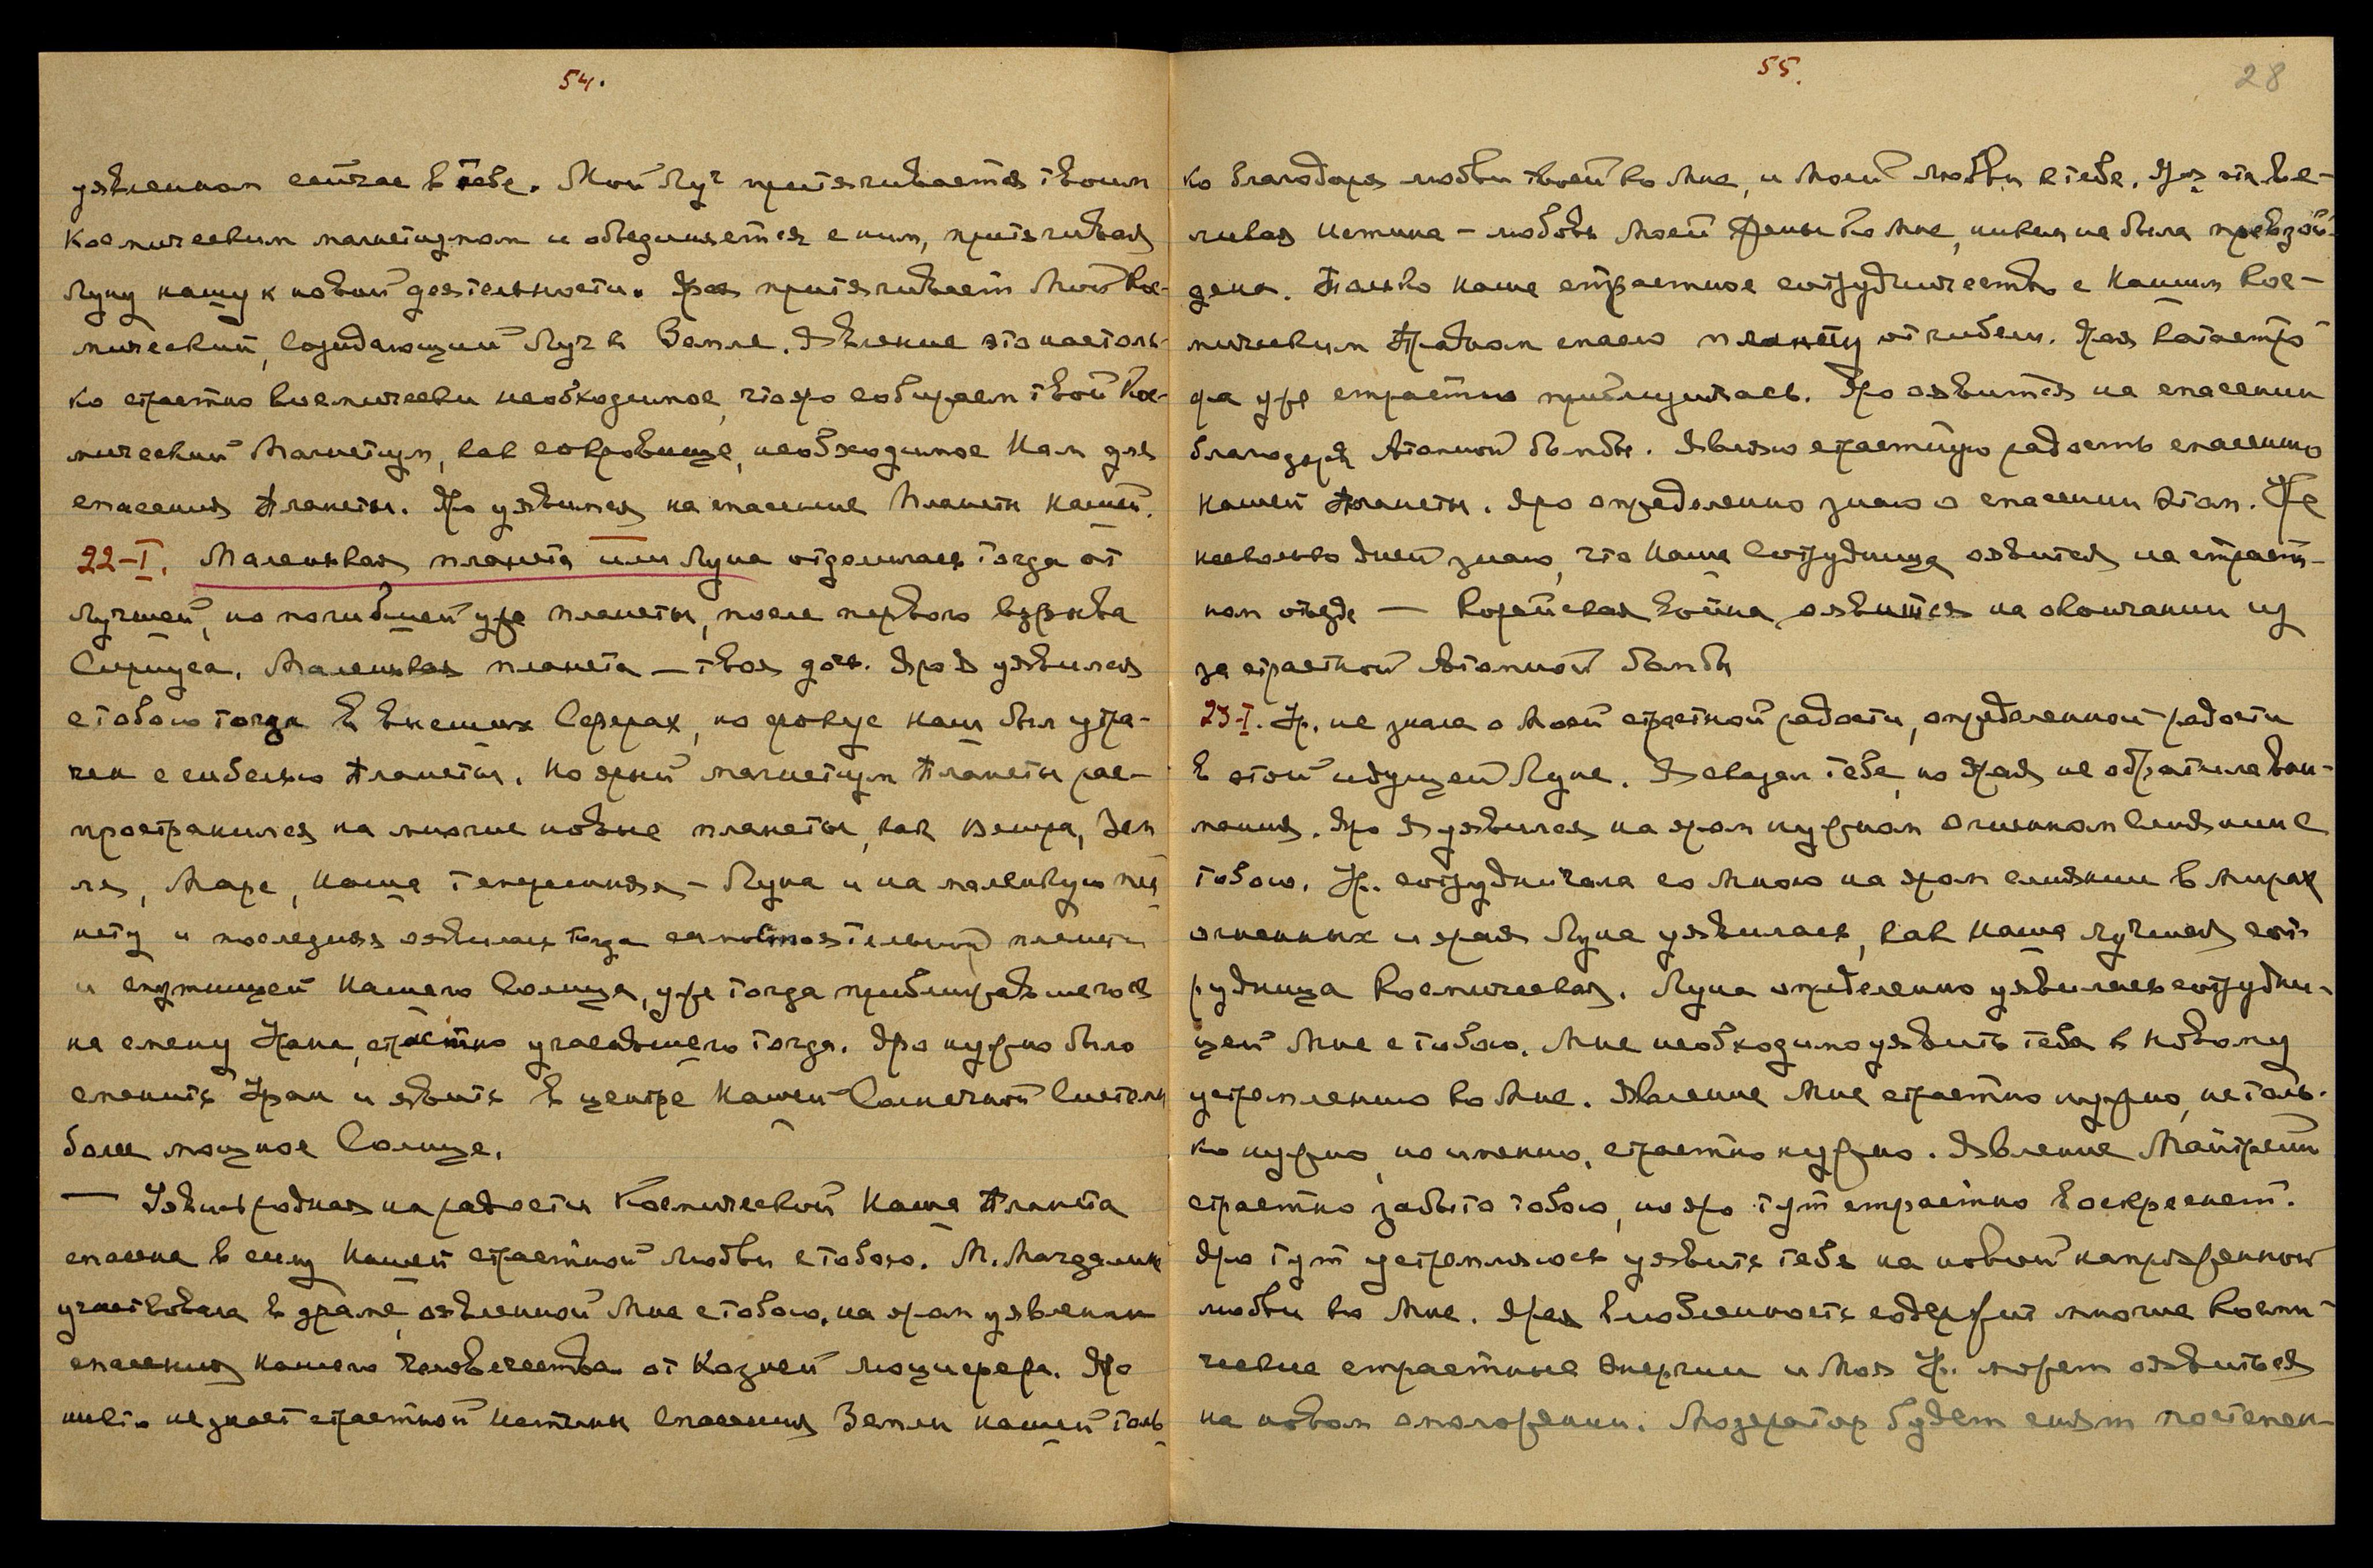 54.
уявленном сейчас в тебе. Мой Луч притягивается твоим
Космическим магнетизмом и объединяется с ним, притягивая
Луну нашу к новой деятельности. Яро притягивает Мой Кос-
мический, Созидающий Луч к Земле. Явление это настоль-
ко страстно космически необходимое, что яро собираем твой Кос-
мический Магнетизм, как сокровище, необходимое Нам для
спасения планеты. Яро уявимся на спасение Планеты нашей.
22-I. Маленькая планета или Луна отделилась тогда от
Лучшей, но погибшей уже планеты, после первого взрыва
Сириуса. Маленькая планета — твоя дочь. Яро Я уявился
с тобою тогда в Высших Сферах, но фокус наш был утра-
чен с гибелью планеты. Но ярый магнетизм планеты рас-
пространился на многие новые планеты, как Венера, Зем
ля, Марс, Наша теперешняя - Луна и на маленькую пла
нету и последняя оявилась тогда самостоятельной планетой
и спутницей Нашего Солнца, уже тогда приближавшегося
на смену Урана, страстно угасавшего тогда. Яро нужно было
сменить Уран и явить в центре Нашей Солнечной Системы
более мощное Солнце.
— Уявись родная на радости Космической Наша планета
спасена в силу Нашей страстной Любви с тобою. М. Магдалина
участвовала в драме, оявленной Мне с тобою, на яром уявлении
спасения нашего человечества от Козней Люцифера. Яро
никто не знает страстной Истины Спасения Земли нашей толь
55.
28
ко благодаря любви твоей ко Мне, и Моей Любви к тебе. Яра эта ве-
ликая Истина - любовь Моей Жены ко Мне, никем не была превзой-
дена. Только наше страстное сотрудничество с Нашим Кос-
мическим Градом спасло планету от гибели. Яая катастро
фа уже страстно приблизилась. Яро оявится на спасении
благодаря Атомной бомбы. Являю страстную радость спасению
нашей планеты. Яро определенно знаю о спасении этом. Уже
несколько дней знаю, что Наша Сотрудница оявится на страст-
ном отъезде — Корейская война оявится на окончании из
за страстной Атомной бомбы
23-I. Ур. не знала о Моей страстной радости, определенной радости
в этой идущей Луне. Я сказал тебе, но ярая не обратила вни-
мания. Яро Я уявился на яром нужном Огненном Слиянии с
тобою. Ур. сотрудничала со Мною на яром слиянии в мирах
огненных и ярая Луна уявилась, как Наша лучшая сот-
рудница Космическая. Луна определенно уявилась сотрудни-
цей Мне с тобою. Мне необходимо уявить тебя к новому
устремлению ко Мне. Явление Мне страстно нужно, не толь-
ко нужно, но именно, страстно нужно. Явление Майтрейи
страстно забыто тобою, но яро тут страстно воскреснет.
Яро тут устремляюсь уявить тебя на новой напряженной
любви ко Мне. Ярая влюбленность содержит многие Косми-
ческие страстные энергии и Моя Ур. может оявиться
на новом омоложении. Модератор будет снят постепен-